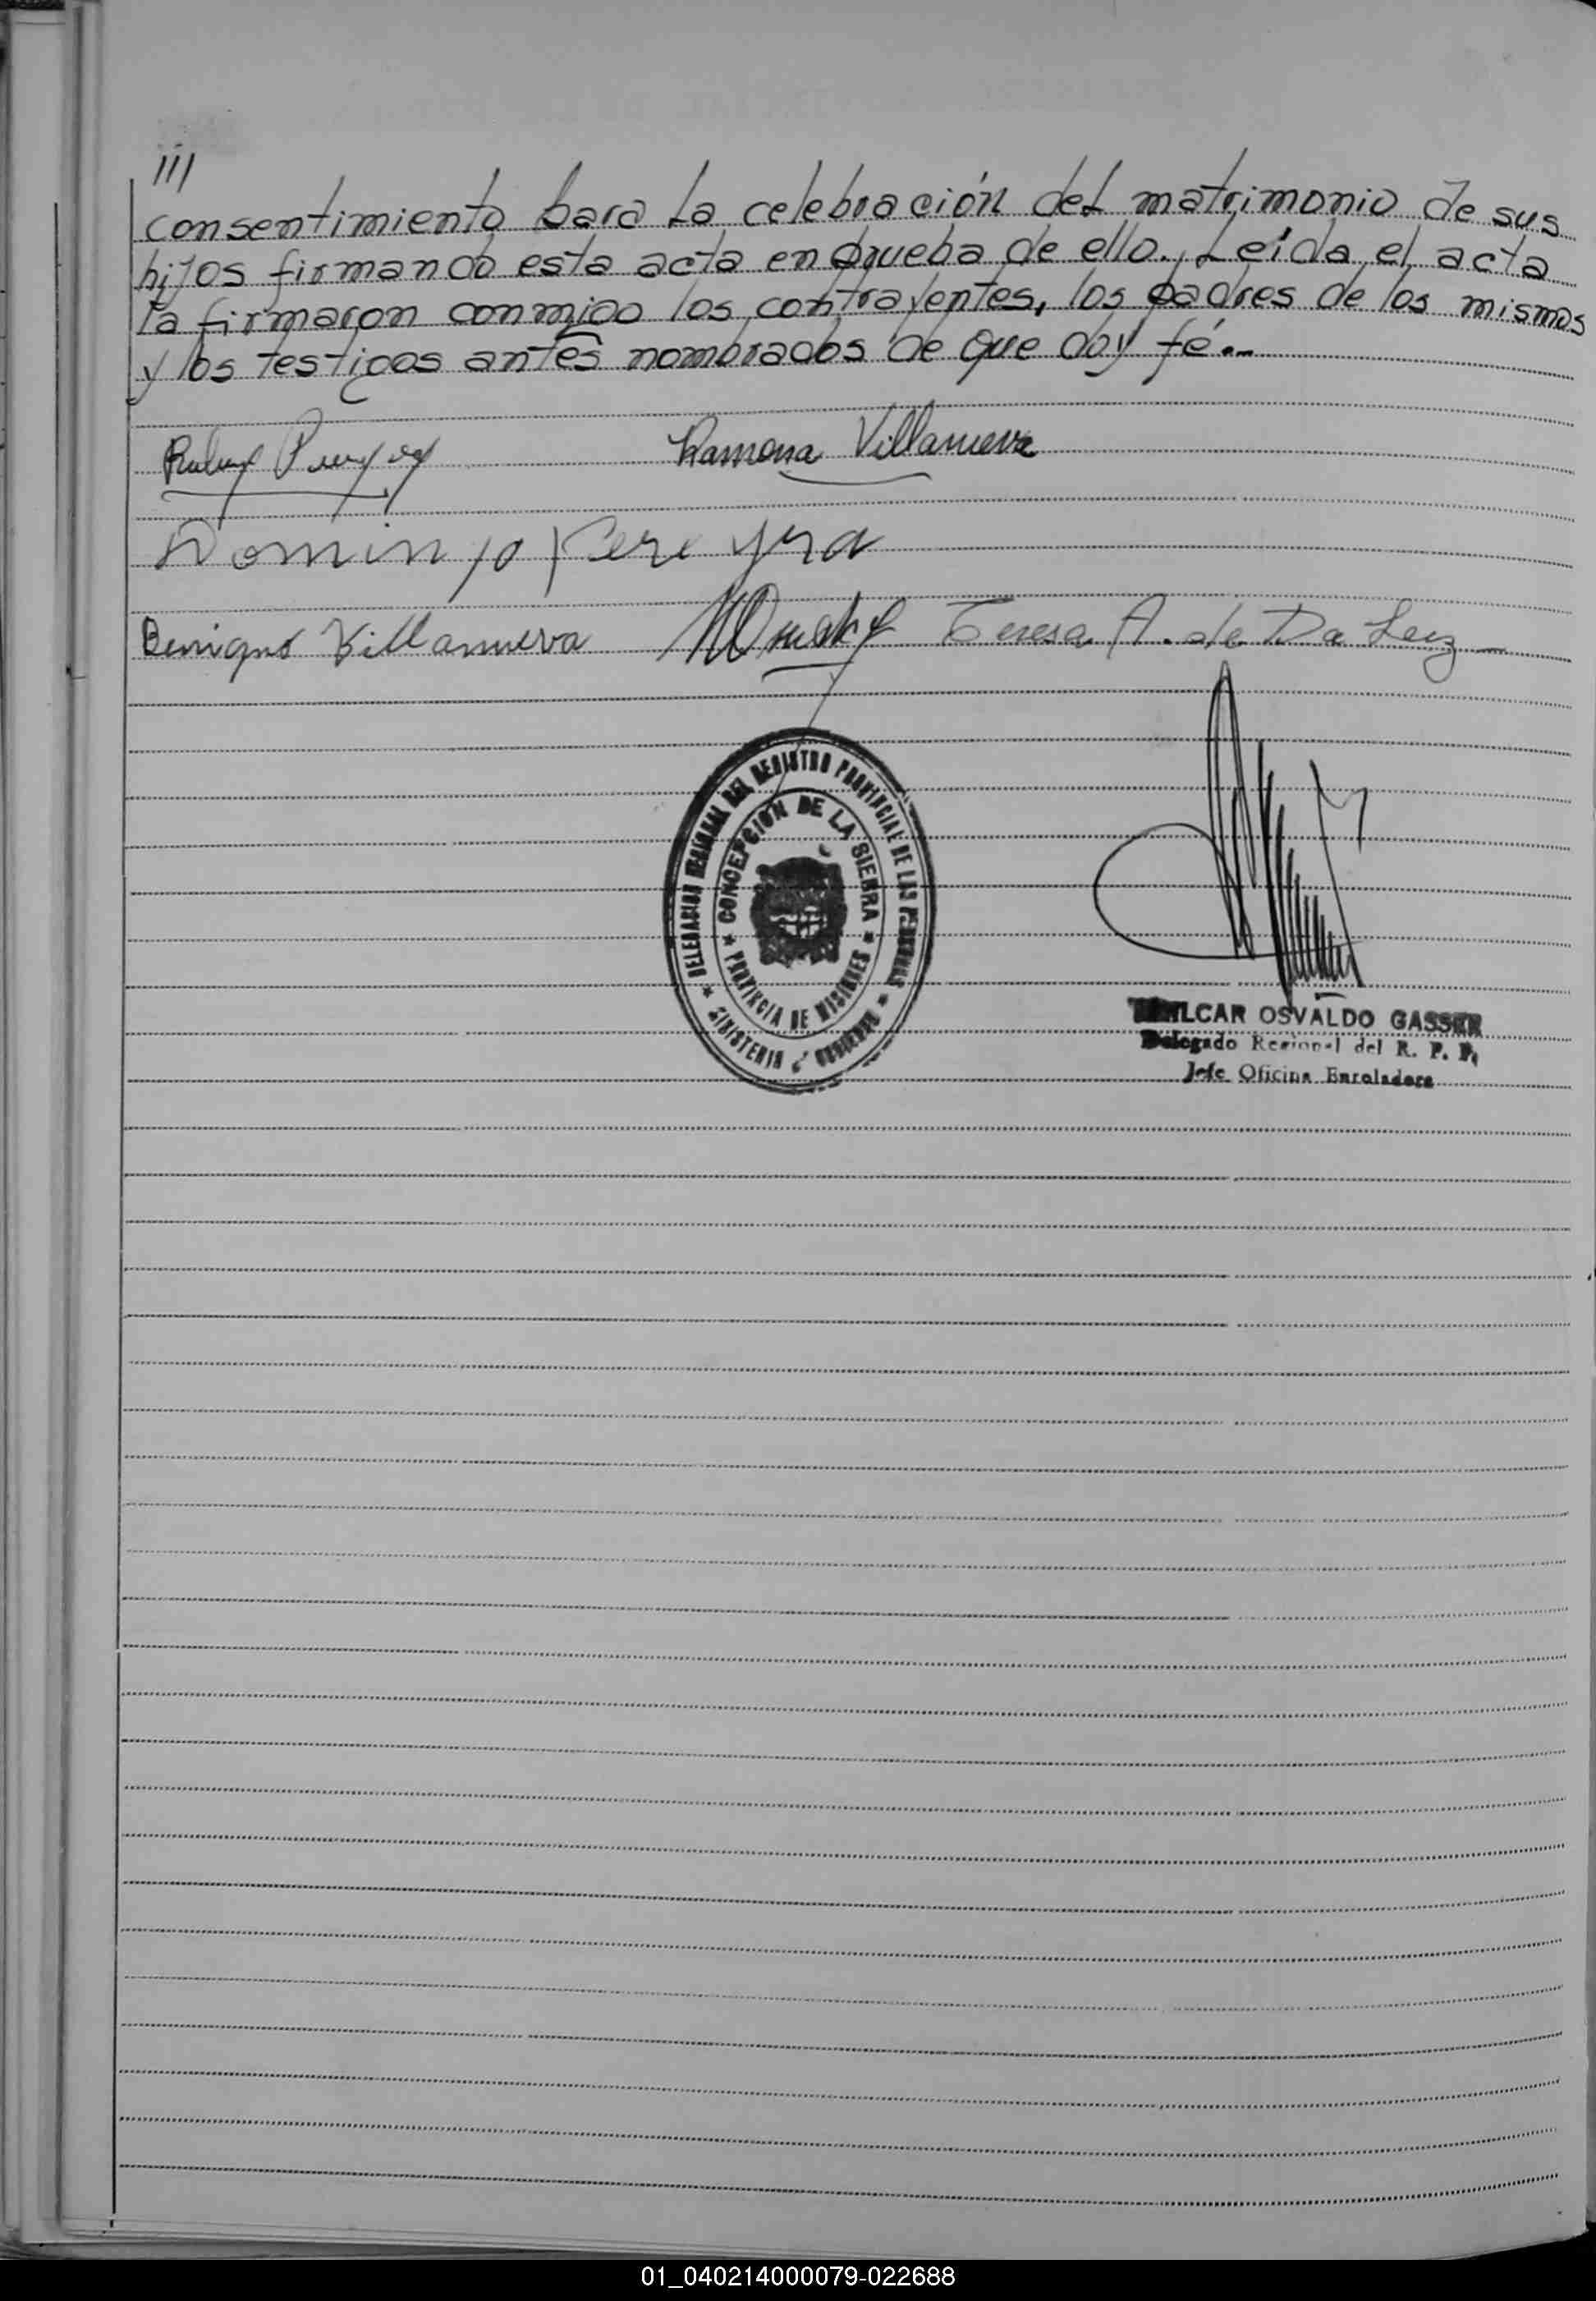 ///
consentimiento para La celebración del matrimonio de sus
hijos firmando esta acta en prueba de ello. Leída el acta
la firmaron conmigo los contrayentes, los padres de los mismos
y los testigos antes nombrados de que doy fé.--
Ramona Villanueva
Domingo Pereyra
Benigno Villanueva Teresa A. de Da Luz
DELEGACION REGIONAL DEL REGISTRO PROVINCIAL DE LAS PERSONAS
CONCEPCION DE LA SIERRA
PROVINCIA DE MISIONES
MINISTERIO GOBIERNO
OSVALDO GASSER
Delegado Regional del R. P. P.
Jefe Oficina Enroladora
01_040214000079-022688